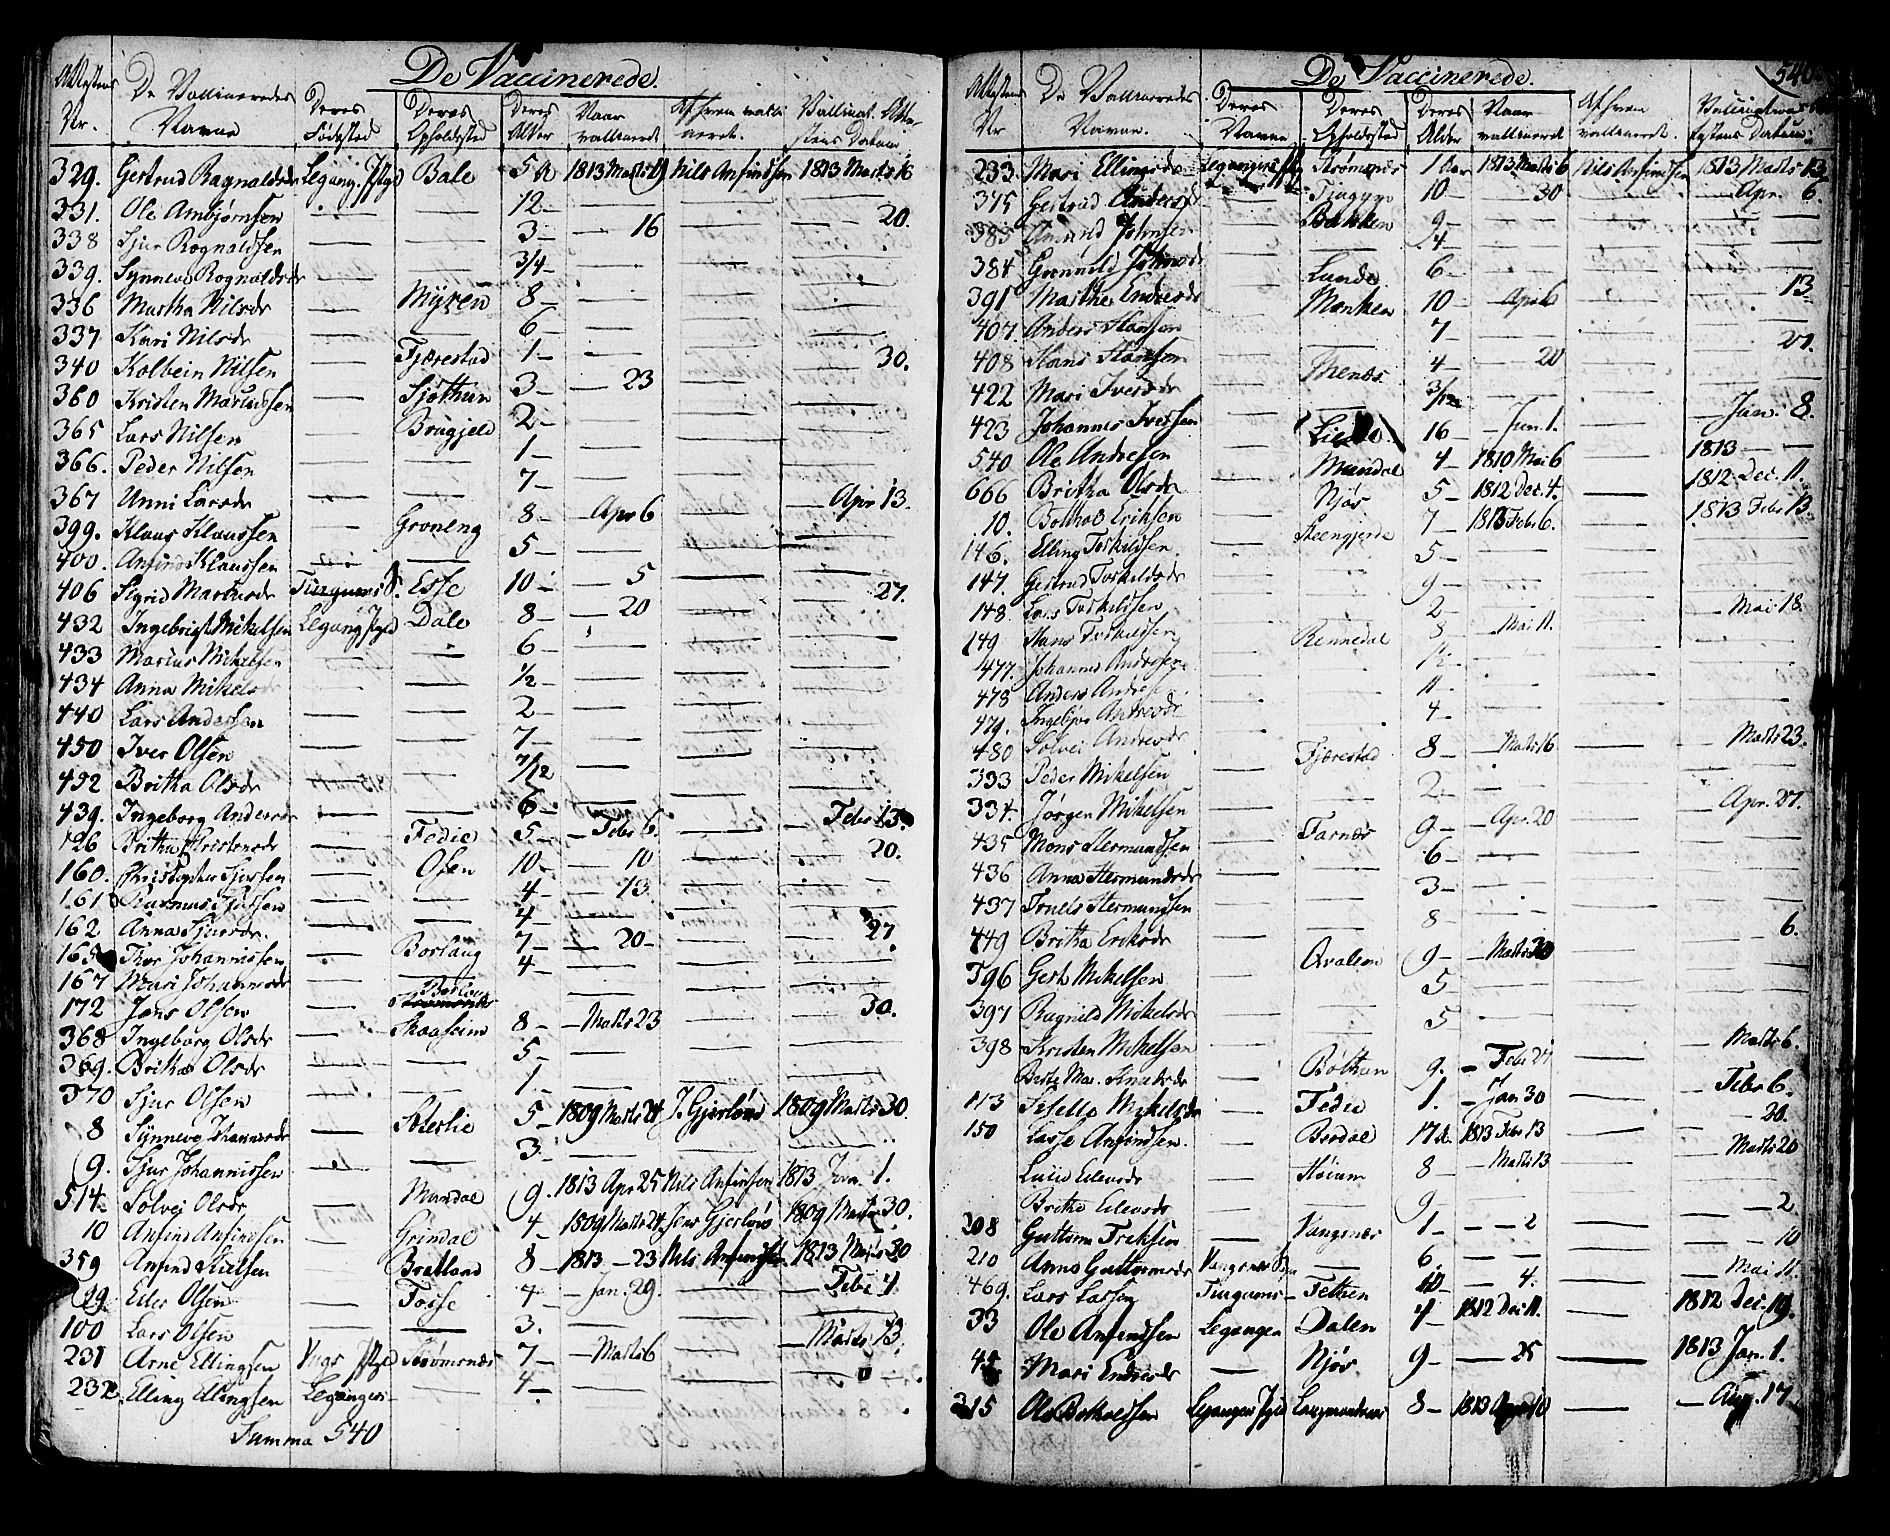 De Vaccinerede.
Attestens Nr. De Vaccineredes Navne Deres Fødested Deres Opholdsted Deres Alder Naar vaccineret Af hvem vacci neret. Vaccinat. Attes tens Datum
329. Gertrud Ragnaldsdr Legang. Pgld Bale 5 1813 Marts 9 Nils Anfindsen 1813 Marts 16
331. Ole Ambjørnsen — — 12 — — — — 20.
338 Sjur Rognaldsen — — 3 — — 16 — —
339. Synneva Rognaldsdr — — 3/4 — — — —
336 Martha Nilsdr — Myren 8 — — — —
337 Kari Nilsdr — — 6 — — — —
340 Kolbein Nilsen — Fjærestad 1 — — — — 30.
360 Kristen Mariussen — Sjøthun 3 — — 23 — —
365 Lars Nilsen — Brugjeld 2 — — — —
366. Peder Nilsen — — 1 — — — —
367 Unni Larsdr — — 7 — — — — Apr 13.
399. Klaus Klaussen — Groneng 8 — — Apr 6 — —
400. Anfind Klaussen — — 5 — — — —
406 Sigrid Mariusdr Tiugums S. Esse 10 — — 5 — — 27.
432 Ingebrigt Mikelsen Legang Pgld Dale 8 — — 20 — —
433 Marius Mikelsen — — 6 — — — —
434 Anna Mikelsdr — — 1/2 — — — —
440 Lars Andersen — — 2 — — — —
450 Iver Olsen — — 7 — — — —
452 Britha Olsdr — — 7/12 — — — —
439. Ingeborg Andersdr — — 6 — — — — Febr 13.
126 Britha Kristensdr — Fedie 5 — — Febr 6. — — 20.
160. Christopher Sjursen — Osen 10 — — 10 — —
161 Rasmus Sjursen — — 4 — — 13. — —
162 Anna Sjursdr. — — 4 — — — — 27.
165 Thor Johannissen — Borlaug 7 — — 20 — —
167 Mari Johannesdr — — 4 — — — —
172 Jens Olsen — Borlaug — — — 30.
368 Ingeborg Olsdr — Skaaseim 8 — — Marts 23 — —
369. Britha Olsdr — — 5 — — — —
370 Sjur Olsen — — 1. — — — —
8 Synneva Johannesdr — Sterlie 5 — 1809 Marts 24 J. Gjerløw 1809 Marts 30.
9. Sjur Johannissen — — 3 — — — —
514. Solvei Olsdr — Mundal 9. 1813 Apr 25 Nils Anfinsen 1813 Jun. 1.
10 Anfind Anfindsen — Grindal 4 — 1809 Marts 24. Jens Gjerløw 1809 Marts 30.
359 Anfind Nielsen — Bratland 8 — 1813 — 23 Nils Anfindsen 1813 Marts 30
99. Eiler Olsen — Fosse 4 — — Jan. 29. — — Febr 4
100 Lars Olsen — — 3. — — — —
231 Arne Ellingsen Vugs Pgld Strømsnæs 7 — — Marts 6 — — Marts 13.
232. Elling Ellingsen Leganger — — 4. — — — —
Summa 540
De Vaccinerede. 540
Attestens Nr De Vaccineredes Navne. Deres Navne Deres Opholdsted Deres Alder Naar vaccineret Af hvem vaccineret. Vaccinat. Attestens Datum
233. Mari Ellingsdr Legangers Pgld Strømsnæs 1 Aar 1813 Marts 6 Nils Anfindsen 1813 Marts 13
375 Gertrud Andersdr — Tiugum 10 — 30 — — Apr. 6.
385 Amund Johnsen — Bakken 9 — — — —
384 Gunnild Johnsdr — — 4 — — — —
391 Marthe Endresdr — Lunde 6 — — — — 13.
407. Anders Hansen — Menken 10 — — Apr 6 — —
408 Hans Hansen — — 7 — — — — 27.
422 Mari Iversdr — Menæs 4 — — 20 — —
423 Johannes Iversen — — 3/12 — — — —
540 Ole Andresen — 16 — — Jun. 1. — — Jun. 8.
666 Britha Olsdr — Mundal 4 — 1810 Mai 6 — 1813 —
10. Botholf Eriksen — Njøs 5 — 1812 Dec. 4. — 1812 Dec. 11.
146. Elling Torkildsen. — Steengjerde 7 — 1813 Febr 6. — 1813 Febr 13.
147. Gertrud Torkildsdr — — 5 — — — —
148. Lars Torkildsen — — 9 — — — —
149 Hans Torkildsen — — 2 — — — —
477. Johannes Andresen — Rennedal 8 — Mai 11. — — Mai 18.
478 Anders Andresen — — — — — —
479. Ingebjør Andresdr — — 11 — — — —
480 Solvei Andresdr — — 4 — — — —
333 Peder Mikelsen — Fjærestad 8 — Marts 16 — — Marts 23.
334. Jørgen Mikelsen — — 2 — — — —
435 Mons Hermundsen — Farnæs 9 — Apr. 20 — — Apr. 27.
436 Anna Hermundsdr — — 6 — — — —
437 Truels Hermundsen — — 3 — — — —
449 Britha Eriksdr — — 8 — — — —
396 Gert Mikelsen — Qvalem 9 — Marts 30 — — 6.
397 Ragnild Mikelsdr — — 5 — — —
398 Kristen Mikelsen — — 5 — — —
Birte Mar. Knudsdr — Bothun 9. — Febr 27 — — Marts 6.
113 Sisello Mikelsdr — Fedie 1. — Jan 30 — — Febr 6.
150 Lasse Anfindsen. — Brodal 17 1813 Febr 13 — — 20.
Lucie Eilersdr — Høium 8 — Marts 13 — — Marts 20
Brithe Eilersdr — — 9 — — — —
208 Guttorm Eriksen — Vangsnæs 1 — — 2 — — 2
210 Anna Guttormsdr Vangsnæs — 6. — — — — 10
469. Lars Larsen Tiugums — Fethen 10 — 4. — — Mai 11.
33 Ole Anfindsen Leganger Dalen 4 — 1812 Dec. 11. — 1812 Dec. 19.
45 Mari Endresdr — Njøs 9 — — 25 — 1813 Jan. 1.
315 Ole Botholfsen Leganger Pgld 8 — 1813 Apr 10 — — Aug. 17.